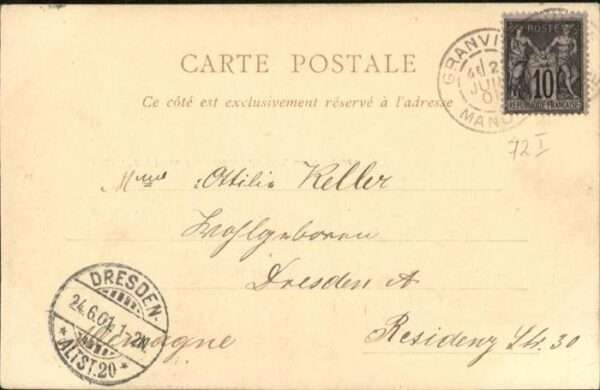 CARTE POSTALE
Ce côté est exclusivement réservé à l'adresse
GRANVI
2
JUI
0
MAN
POSTE
10
REPUBLIQUE FRANCAISE
72 I
Mme Ottilie Keller
Wohlgeboren
Dresden A
Residenz Str. 30
Allemagne
DRESDEN-
24.6.01. 1-2N.
* ALTST.20 *